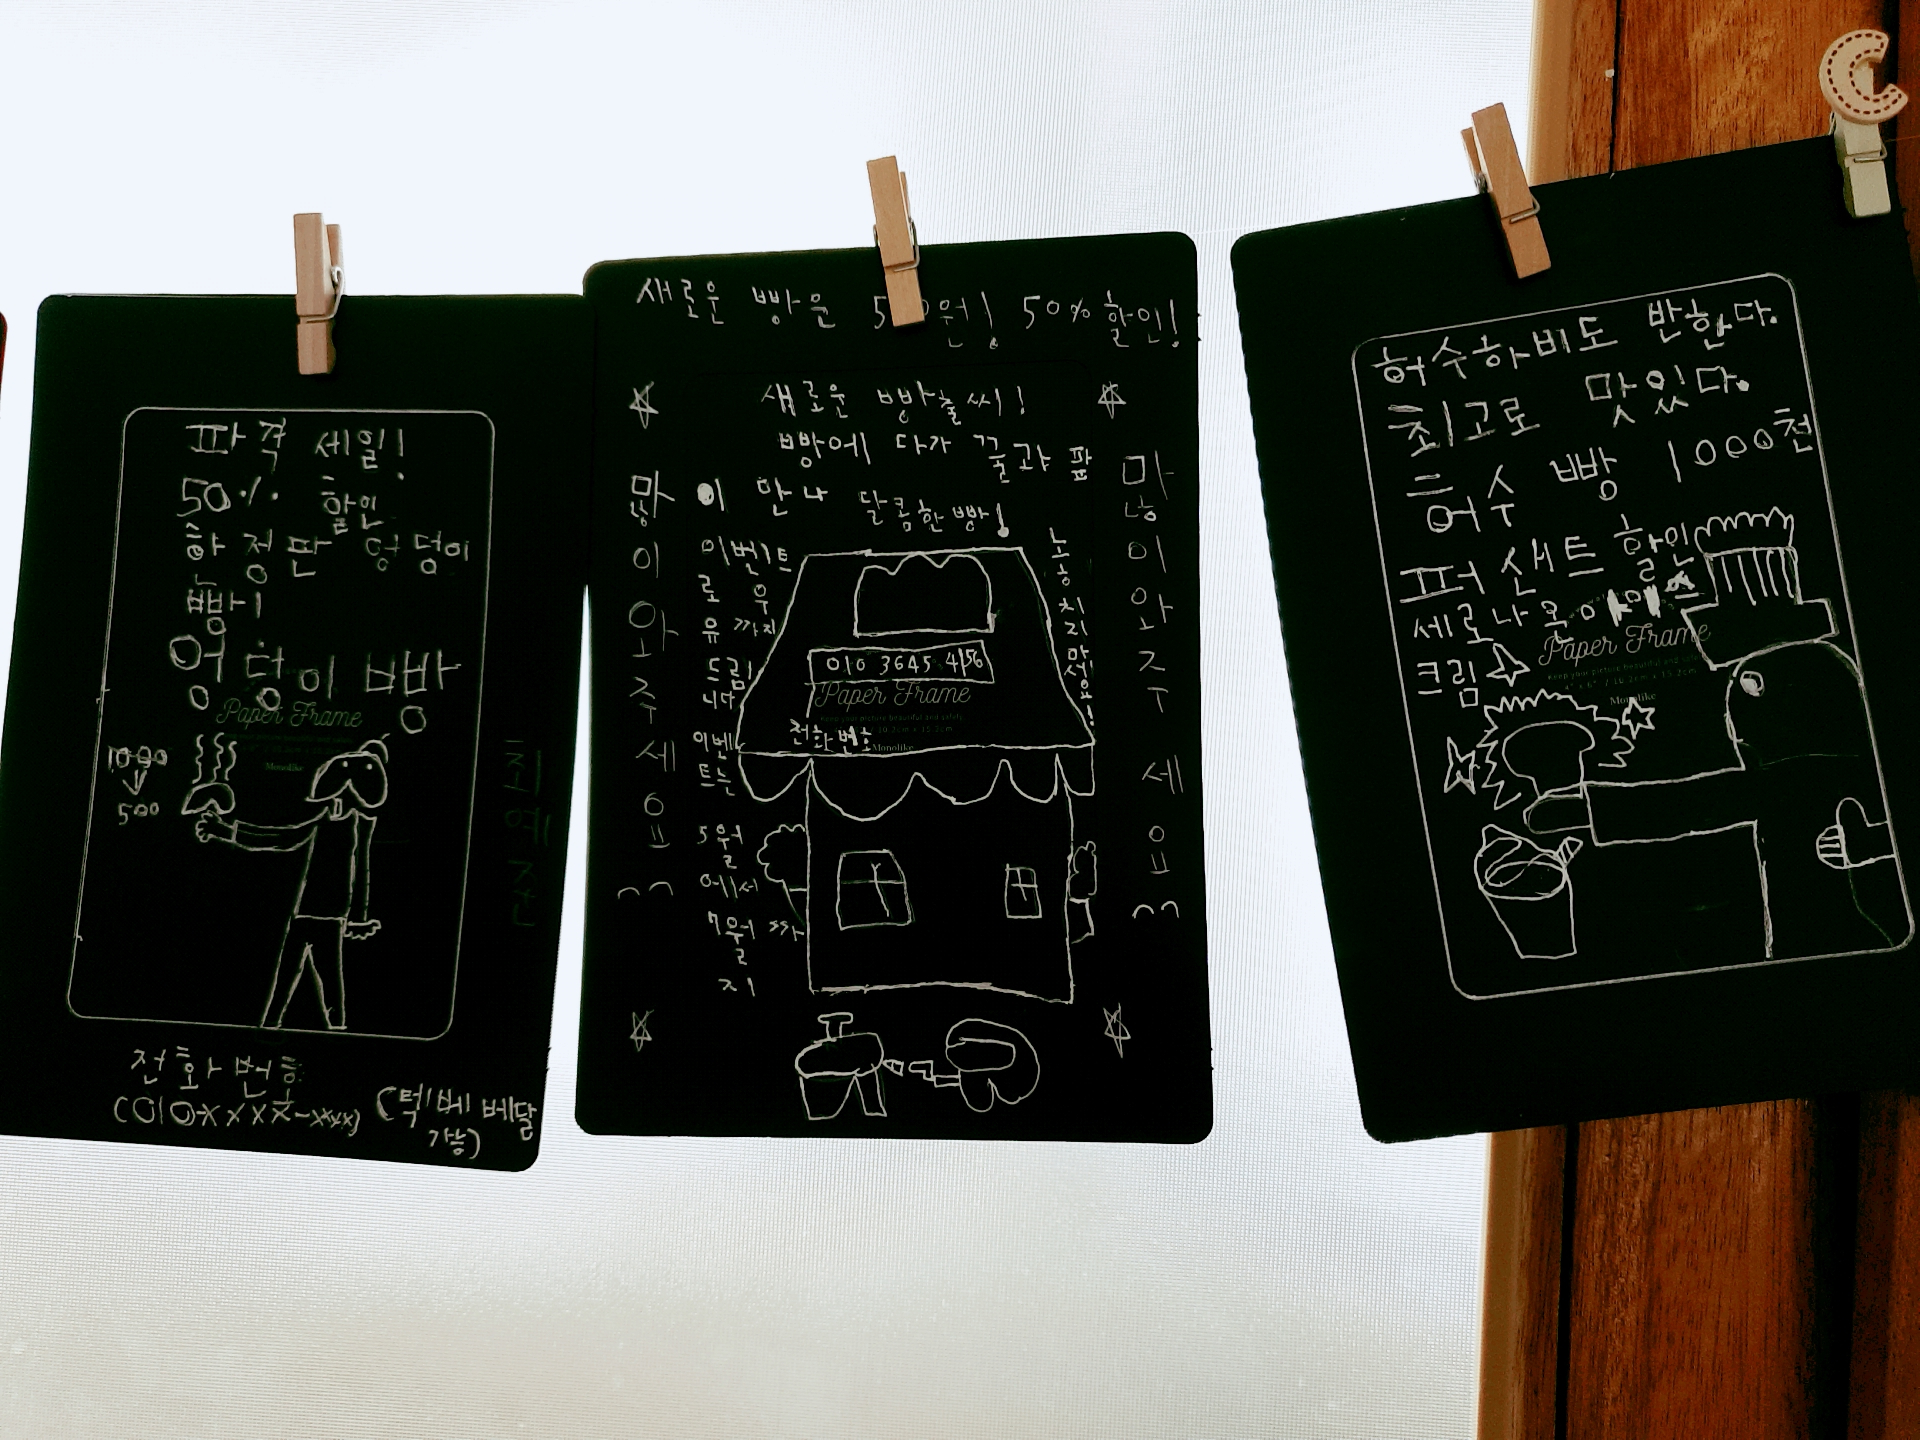 파격 세일!
50% 할인
한정판 엉덩이
빵!
엉덩이 빵
1000
500
Paper Frame
Monolike
전화번호
(010-xxxx-xxxx)
가능)
새로운 빵은 5 원! 50% 할인!
새로운 빵 출씨!
빵에다가 꿀과 팥
이 만나 달콤한 빵!
많이 와주세요
이벤트로 우유까지 드림니다
이벤트는 5월에서 7월까지
노총치지 마세요!
많이 와주세요
010 3645 4156
Paper Frame
Keep your picture beautiful and safely
전화번호
Monolike
허수하비도 반한다.
최고로 맛있다.
허수빵 1000천
퍼센세트 할인
세로 나온
크림
Paper Frame
Keep your picture beautiful and safely
4" x 6" / 10.2cm x 15.2cm
Monolike